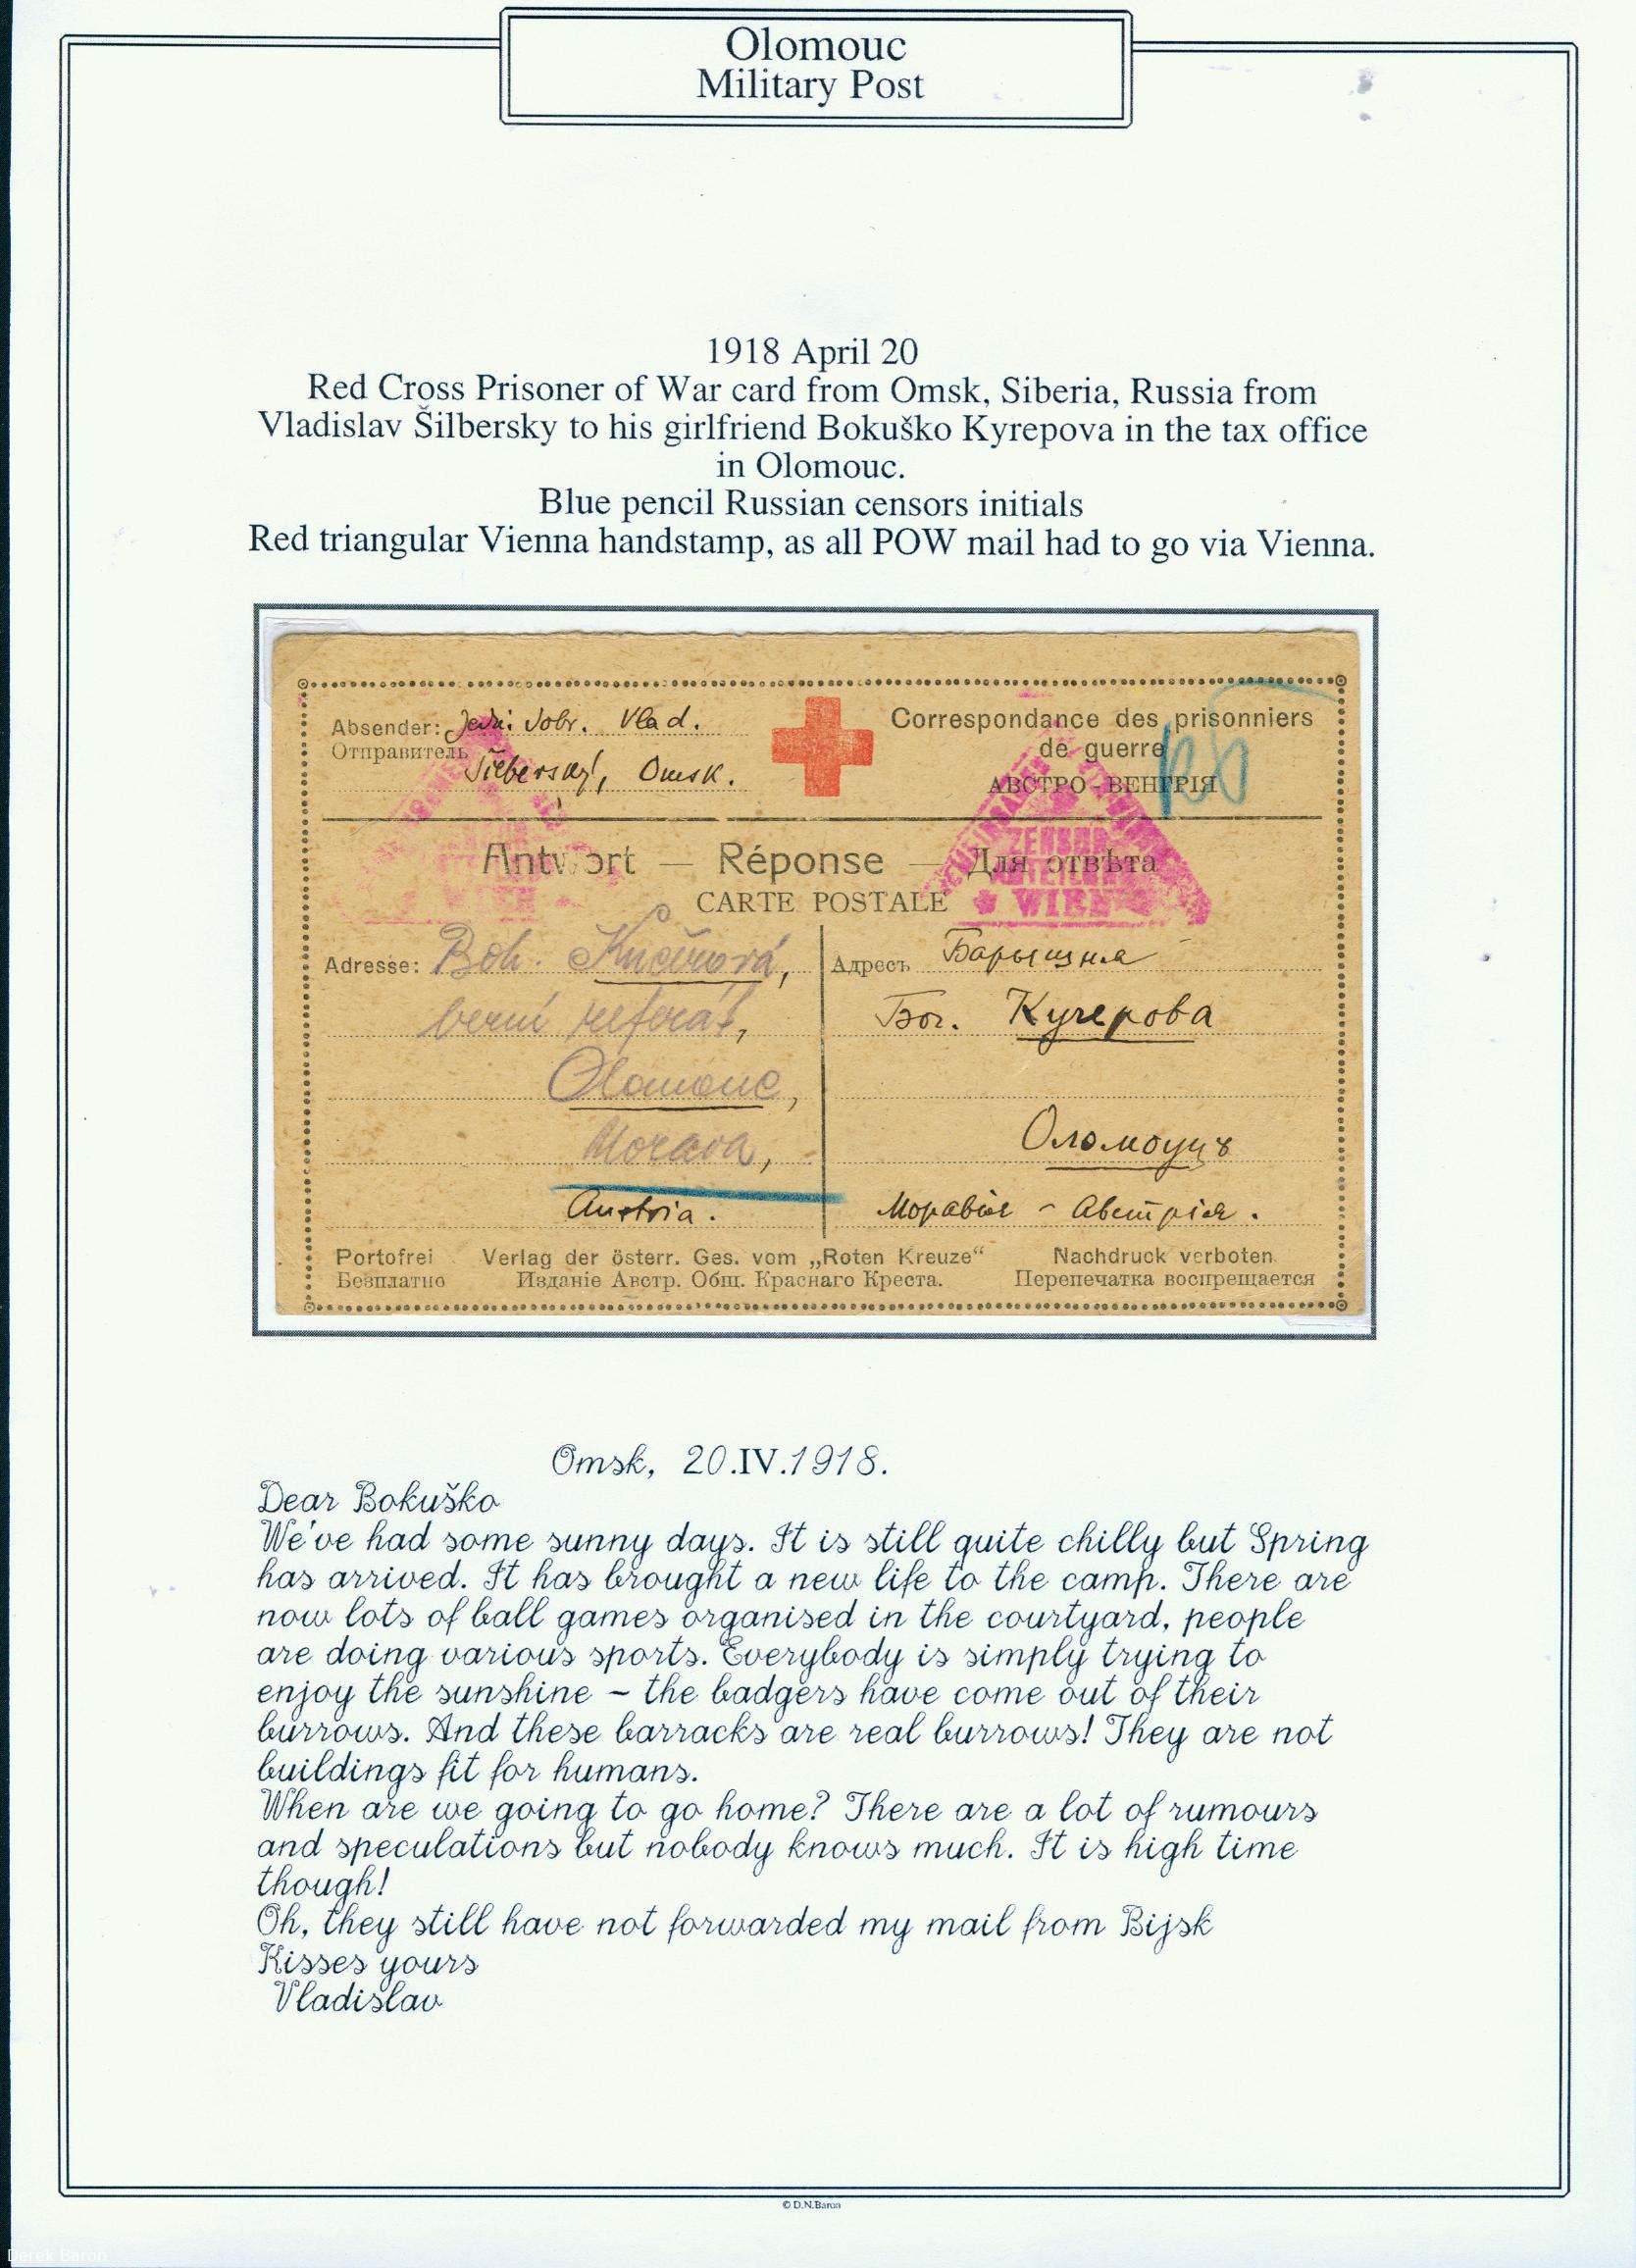 Olomouc
Military Post
1918 April 20
Red Cross Prisoner of War card from Omsk, Siberia, Russia from
Vladislav Šilbersky to his girlfriend Bokuško Kyrepova in the tax office
in Olomouc.
Blue pencil Russian censors initials
Red triangular Vienna handstamp, as all POW mail had to go via Vienna.
Absender: Vlad.
Отправитель Omsk.
Correspondance des prisonniers
de guerre
АВСТРО-ВЕНГРІЯ
Antwort — Réponse — Для отвѣта
CARTE POSTALE
ZENSUR
WIEN
Adresse: Boh. Kučerová,
berní referát,
Olomouc,
Morava,
Austria.
Адресъ Барышня
Бог. Кучерова
Оломоуцъ
Моравія - Австрія.
Portofrei Verlag der österr. Ges. vom „Roten Kreuze“ Nachdruck verboten
Безплатно Изданіе Австр. Общ. Краснаго Креста. Перепечатка воспрещается
Omsk, 20.IV.1918.
Dear Bokuško
We've had some sunny days. It is still quite chilly but Spring
has arrived. It has brought a new life to the camp. There are
now lots of ball games organised in the courtyard, people
are doing various sports. Everybody is simply trying to
enjoy the sunshine - the badgers have come out of their
burrows. And these barracks are real burrows! They are not
buildings fit for humans.
When are we going to go home? There are a lot of rumours
and speculations but nobody knows much. It is high time
though!
Oh, they still have not forwarded my mail from Bijsk
Kisses yours
Vladislav
© D.N.Baron
Derek Baron